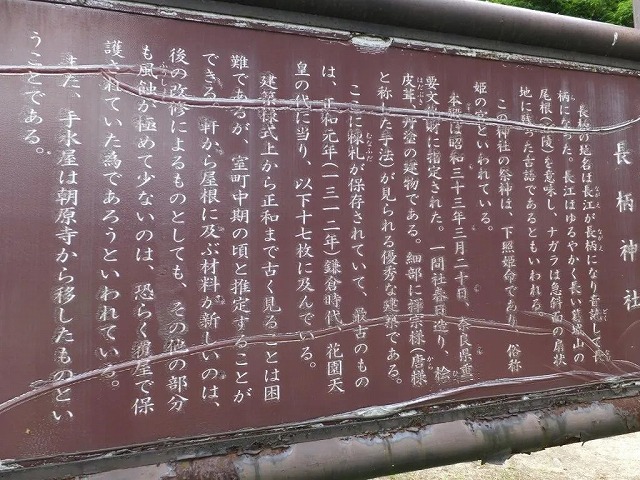 長柄神社
長柄の地名は長江が長柄になり音読して長
柄になった。長江はゆるやかく長い葛城山の
尾根(丘陵)を意味し、ナガラは急斜面の扇状
地に残った古語であるともいわれる。
この神社の祭神は、下照姫命であり、俗称
姫の宮といわれている。
本殿は昭和三十三年三月二十日、奈良県重
要文化財に指定された。一間社春日造り、桧
皮葺、丹塗の建物である。細部に禅宗様(唐様
と称した手法)が見られる優秀な建築である。
ここに棟札が保存されていて、最古のもの
は、正和元年(一三一二年)鎌倉時代、花園天
皇の代に当り、以下十七枚に及んでいる。
建築様式上から正和まで古く見ることは困
難であるが、室町中期の頃と推定することが
できる。軒から屋根に及ぶ材料が新しいのは、
後の改修によるものとしても、その他の部分
も風蝕が極めて少ないのは、恐らく覆屋で保
護されていた為であろうといわれている。
また、手水屋は朝原寺から移したものとい
うことである。